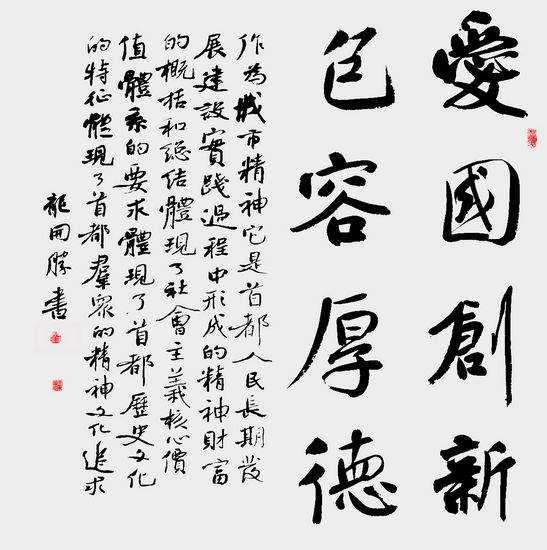 愛國創新
包容厚德
作為城市精神它是首都人民長期發
展建設實踐過程中形成的精神財富
的概括和總结體現了社會主義核心價
值體系的要求體現了首都歷史文化
的特征體現了首都羣眾的精神文化追求
龍開勝書